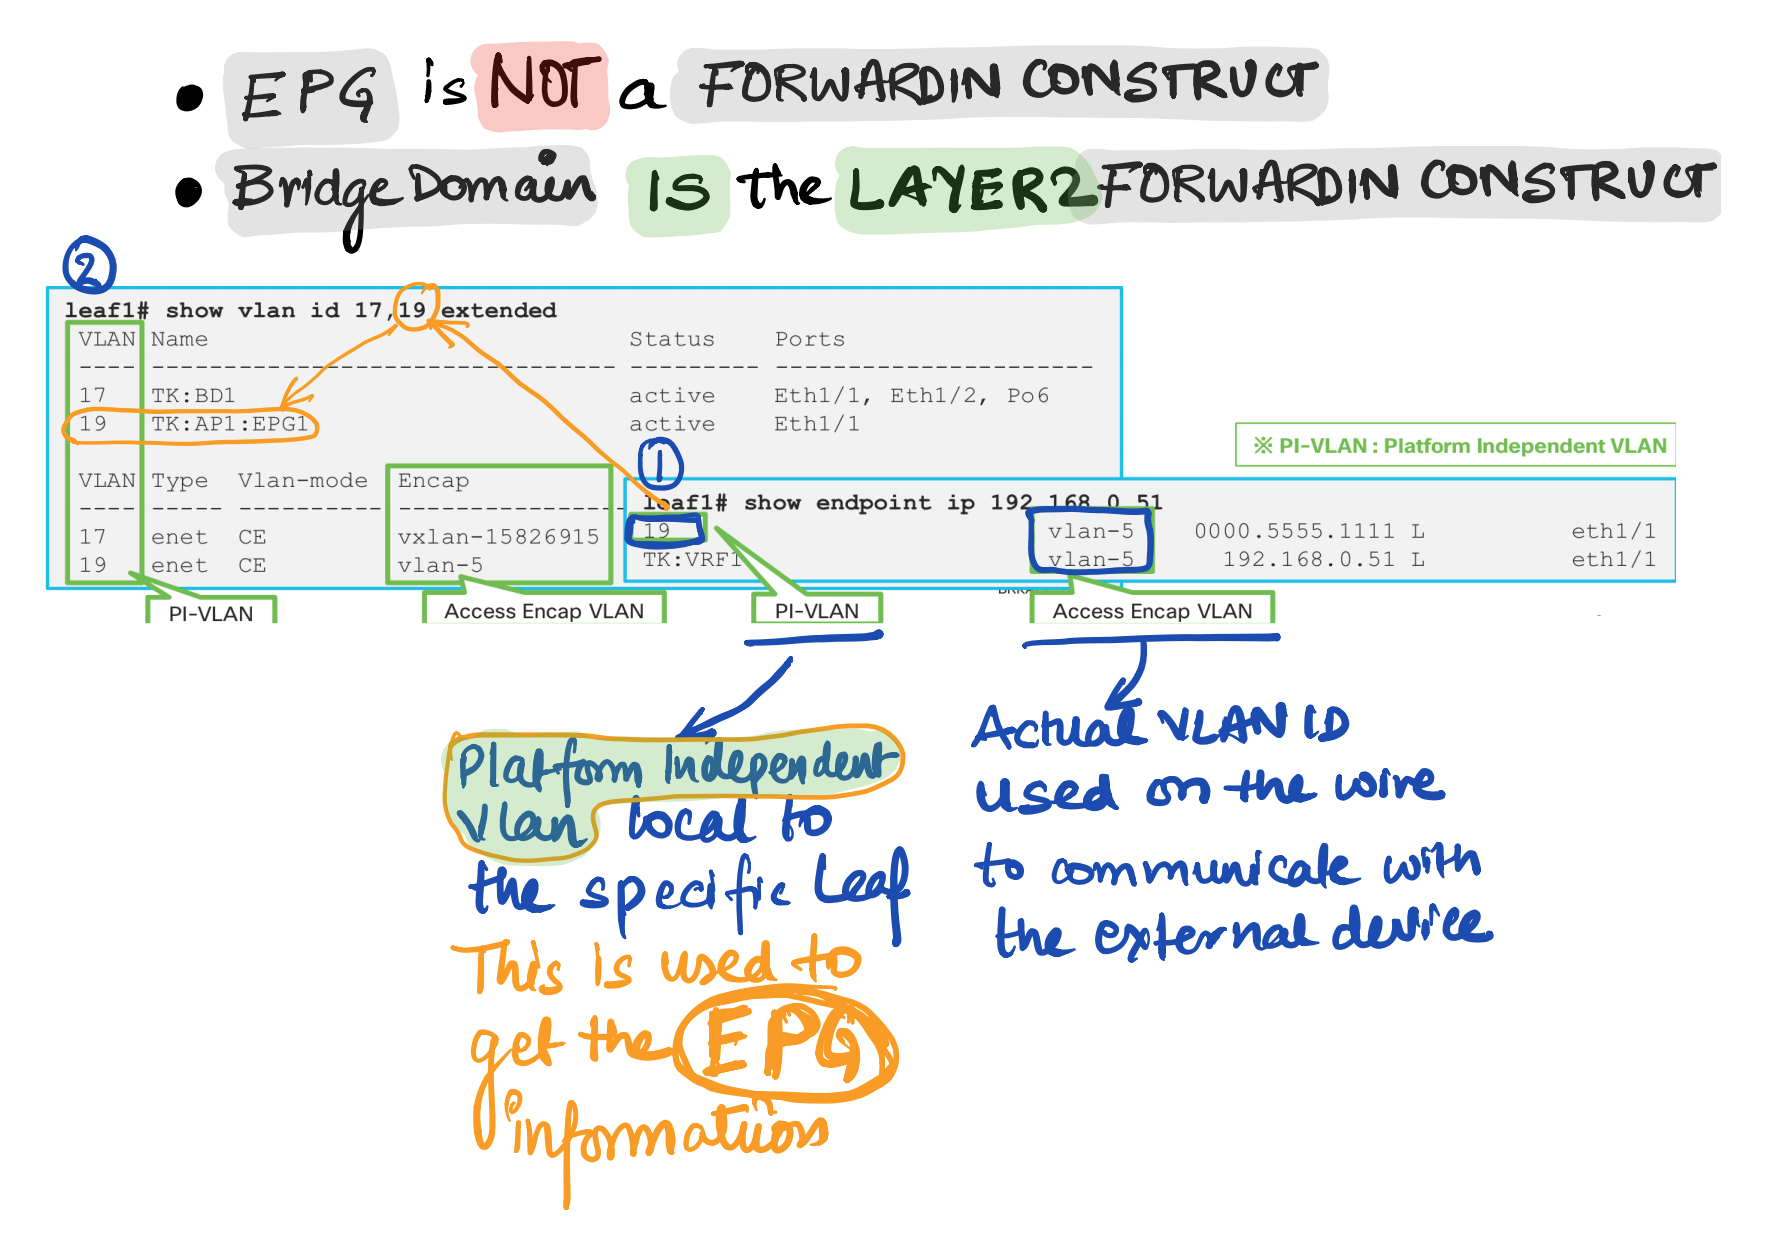 • EPG is NOT a FORWARDIN CONSTRUCT
• Bridge Domain IS the LAYER2 FORWARDIN CONSTRUCT
2
leaf1# show vlan id 17,19 extended
VLAN Name Status Ports
---- -------------------------------- --------- ----------------------
17 TK:BD1 active Eth1/1, Eth1/2, Po6
19 TK:AP1:EPG1 active Eth1/1
VLAN Type Vlan-mode Encap
---- ----- ---------- ----------------
17 enet CE vxlan-15826915
19 enet CE vlan-5
PI-VLAN
Access Encap VLAN
※ PI-VLAN : Platform Independent VLAN
1
leaf1# show endpoint ip 192.168.0.51
19 vlan-5 0000.5555.1111 L eth1/1
TK:VRF1 vlan-5 192.168.0.51 L eth1/1
PI-VLAN
Access Encap VLAN
Platform Independent
Vlan local to
the specific Leaf
This is used to
get the EPG
information
Actual VLAN ID
used on the wire
to communicate with
the external device